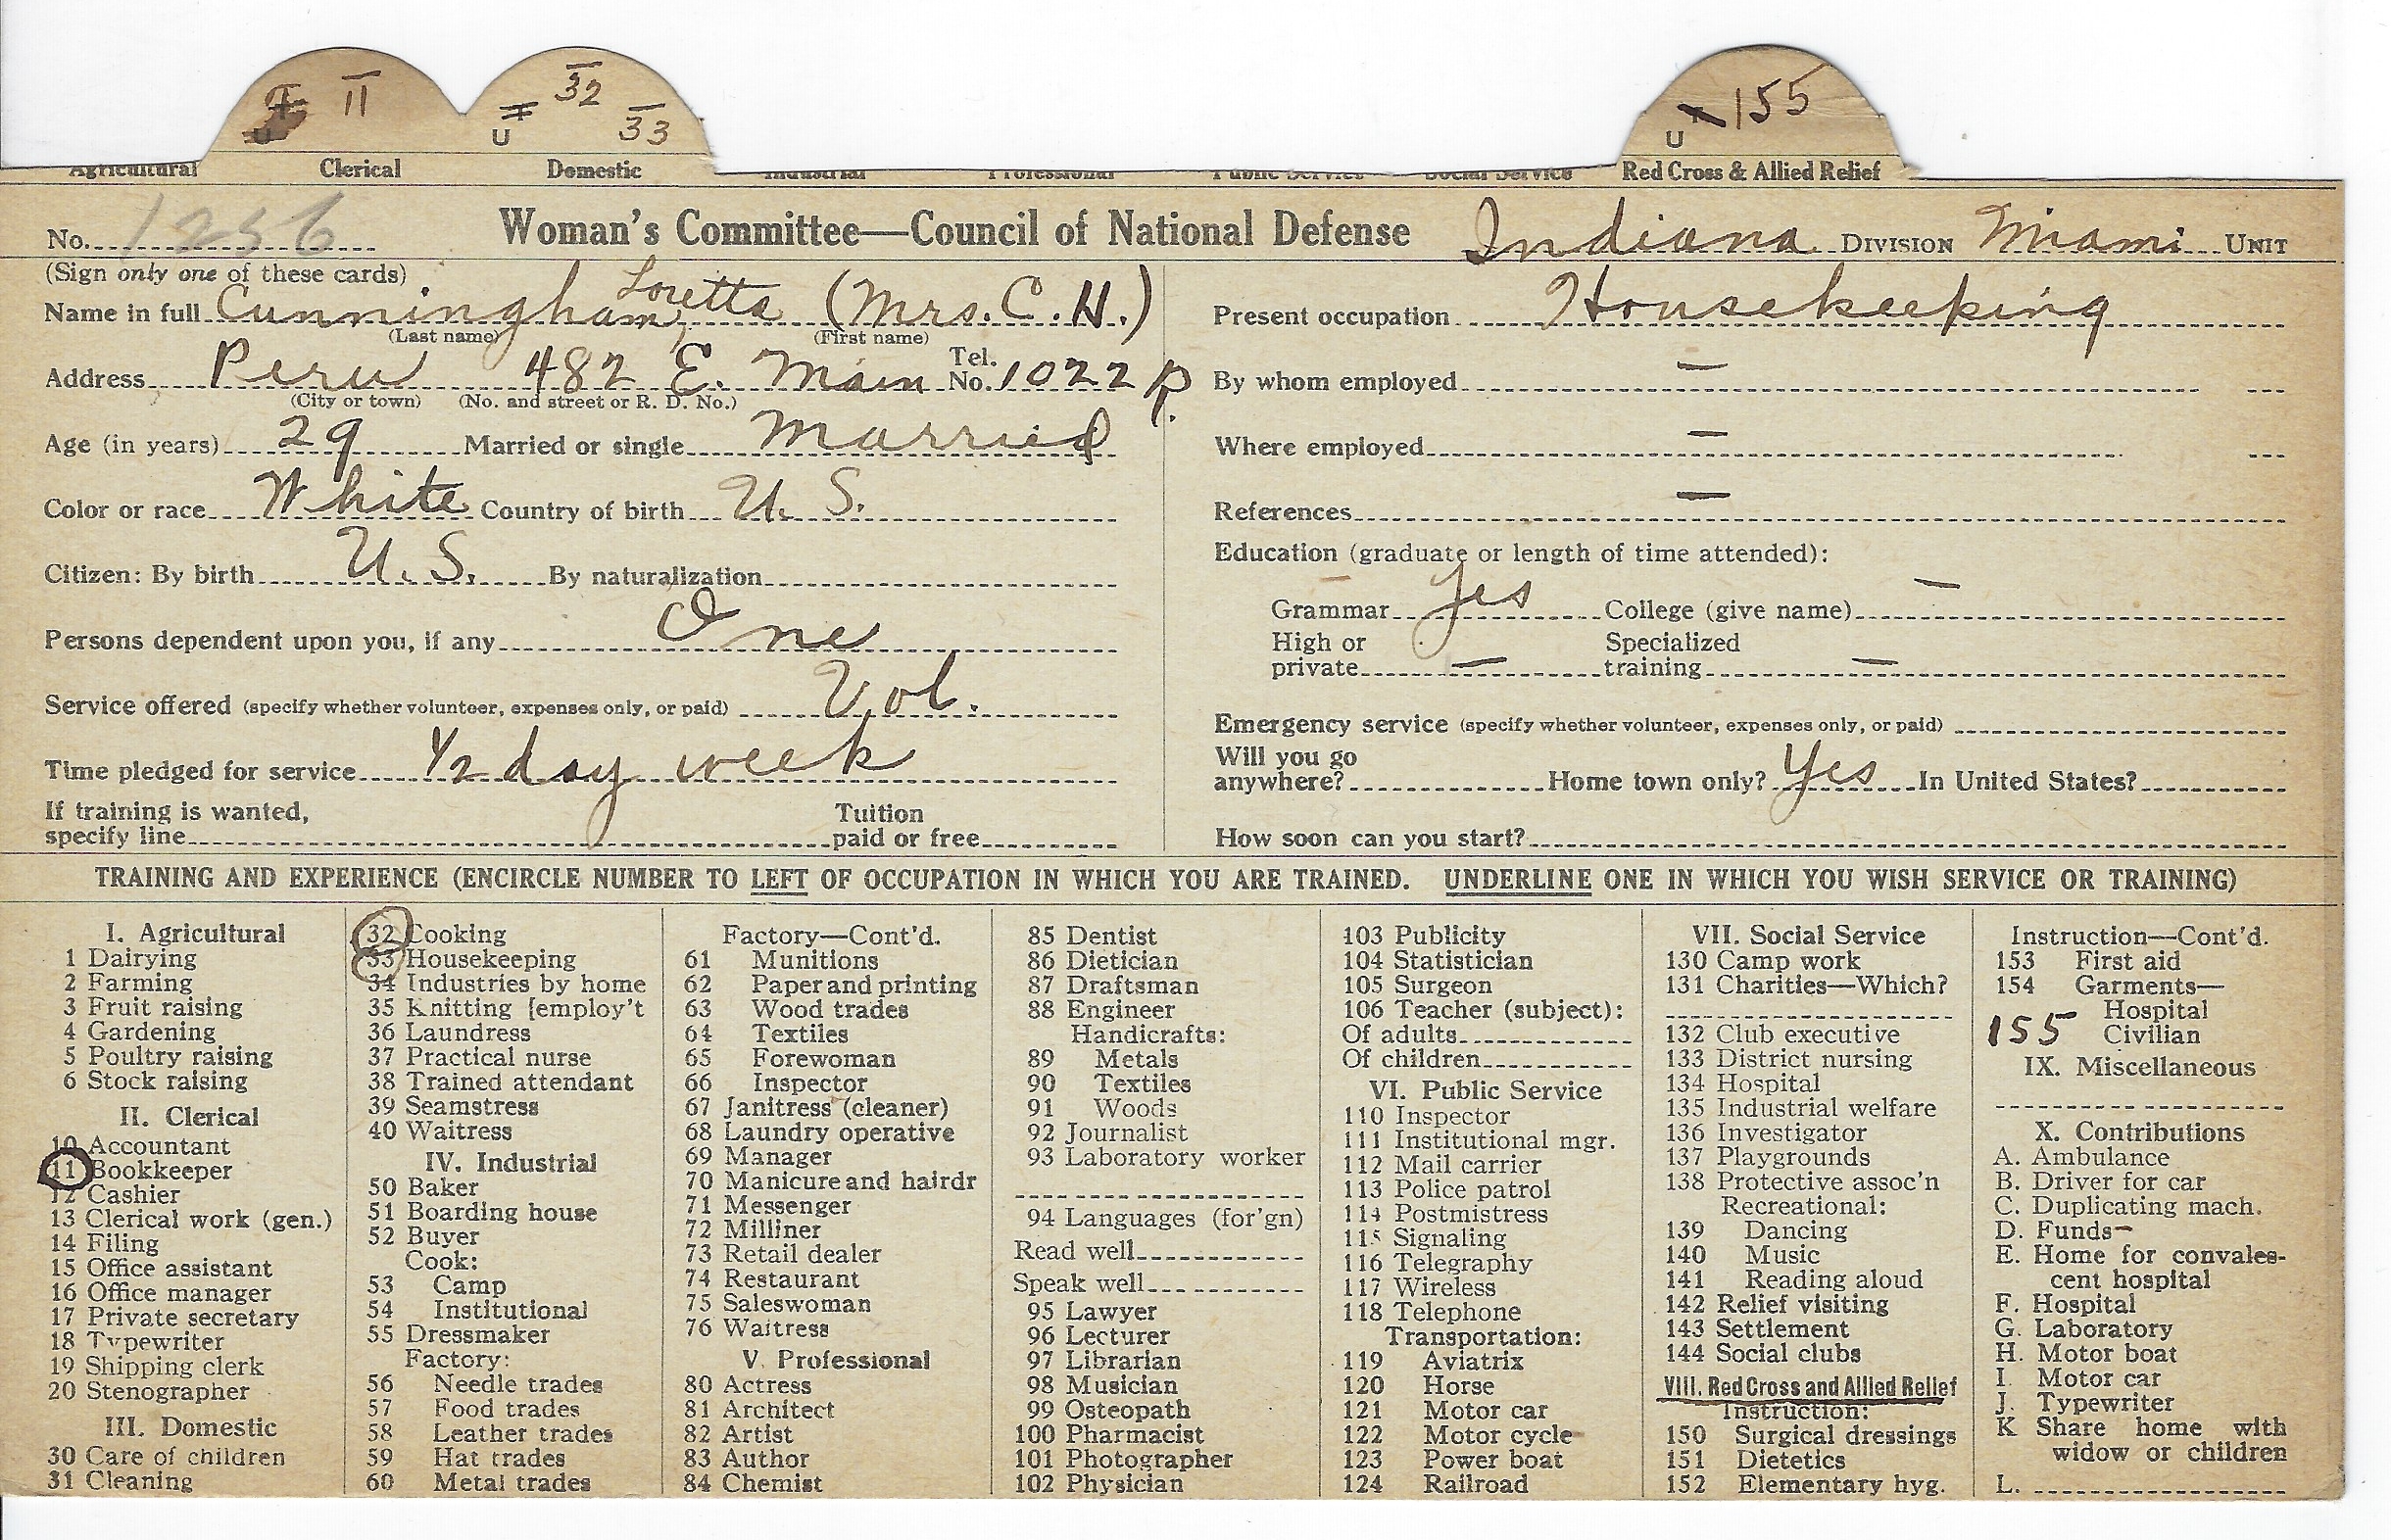 T 11 T 32 155
U U 33 U
Agricultural Clerical Domestic Industrial Professional Public Service Social Service Red Cross & Allied Relief
No. 1256 Woman's Committee—Council of National Defense Indiana DIVISION Miami UNIT
(Sign only one of these cards)
Name in full Cunningham, Loretta (Mrs. C. H.)
(Last name) (First name)
Address Peru 482 E. Main Tel. No. 1022 p.
(City or town) (No. and street or R. D. No.)
Age (in years) 29 Married or single Married
Color or race White Country of birth U. S.
Citizen: By birth U. S. By naturalization
Persons dependent upon you, if any One
Service offered (specify whether volunteer, expenses only, or paid) Vol.
Time pledged for service 1/2 day week
If training is wanted, Tuition
specify line paid or free
Present occupation Housekeeping
By whom employed —
Where employed —
References —
Education (graduate or length of time attended):
Grammar Yes College (give name) —
High or Specialized
private — training —
Emergency service (specify whether volunteer, expenses only, or paid)
Will you go
anywhere? Home town only? Yes In United States?
How soon can you start?
TRAINING AND EXPERIENCE (ENCIRCLE NUMBER TO LEFT OF OCCUPATION IN WHICH YOU ARE TRAINED. UNDERLINE ONE IN WHICH YOU WISH SERVICE OR TRAINING)
I. Agricultural
1 Dairying
2 Farming
3 Fruit raising
4 Gardening
5 Poultry raising
6 Stock raising
II. Clerical
10 Accountant
11 Bookkeeper
12 Cashier
13 Clerical work (gen.)
14 Filing
15 Office assistant
16 Office manager
17 Private secretary
18 Typewriter
19 Shipping clerk
20 Stenographer
III. Domestic
30 Care of children
31 Cleaning
32 Cooking
33 Housekeeping
34 Industries by home
35 Knitting [employ't
36 Laundress
37 Practical nurse
38 Trained attendant
39 Seamstress
40 Waitress
IV. Industrial
50 Baker
51 Boarding house
52 Buyer
Cook:
53 Camp
54 Institutional
55 Dressmaker
Factory:
56 Needle trades
57 Food trades
58 Leather trades
59 Hat trades
60 Metal trades
Factory—Cont'd.
61 Munitions
62 Paper and printing
63 Wood trades
64 Textiles
65 Forewoman
66 Inspector
67 Janitress (cleaner)
68 Laundry operative
69 Manager
70 Manicure and hairdr
71 Messenger
72 Milliner
73 Retail dealer
74 Restaurant
75 Saleswoman
76 Waitress
V. Professional
80 Actress
81 Architect
82 Artist
83 Author
84 Chemist
85 Dentist
86 Dietician
87 Draftsman
88 Engineer
Handicrafts:
89 Metals
90 Textiles
91 Woods
92 Journalist
93 Laboratory worker
94 Languages (for'gn)
Read well
Speak well
95 Lawyer
96 Lecturer
97 Librarian
98 Musician
99 Osteopath
100 Pharmacist
101 Photographer
102 Physician
103 Publicity
104 Statistician
105 Surgeon
106 Teacher (subject):
Of adults
Of children
VI. Public Service
110 Inspector
111 Institutional mgr.
112 Mail carrier
113 Police patrol
114 Postmistress
115 Signaling
116 Telegraphy
117 Wireless
118 Telephone
Transportation:
119 Aviatrix
120 Horse
121 Motor car
122 Motor cycle
123 Power boat
124 Railroad
VII. Social Service
130 Camp work
131 Charities—Which?
132 Club executive
133 District nursing
134 Hospital
135 Industrial welfare
136 Investigator
137 Playgrounds
138 Protective assoc'n
Recreational:
139 Dancing
140 Music
141 Reading aloud
142 Relief visiting
143 Settlement
144 Social clubs
VIII. Red Cross and Allied Relief
Instruction:
150 Surgical dressings
151 Dietetics
152 Elementary hyg.
Instruction—Cont'd.
153 First aid
154 Garments—
Hospital
155 Civilian
IX. Miscellaneous
X. Contributions
A. Ambulance
B. Driver for car
C. Duplicating mach.
D. Funds—
E. Home for convales-
cent hospital
F. Hospital
G. Laboratory
H. Motor boat
I. Motor car
J. Typewriter
K Share home with
widow or children
L.